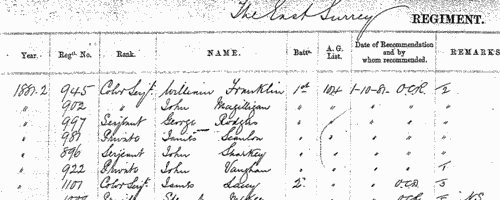 The East Surrey REGIMENT.
Year. Regtl. No. Rank. NAME. Batn. A. G. List. Date of Recommendation and by whom recommended. REMARKS
1881-2 945 Color Serjt. William Franklin 1st 104 1-10-81 O.C.R.
" 902 " John Magilligan " " " "
" 997 Serjeant George " " " "
" 987 Private James Scanlon " " "
" 896 Serjeant John Sharkey " " " "
" 922 Private John Vaughan " " " "
" 1101 Color Serjt. James Lacey 2 " " O.C.R.